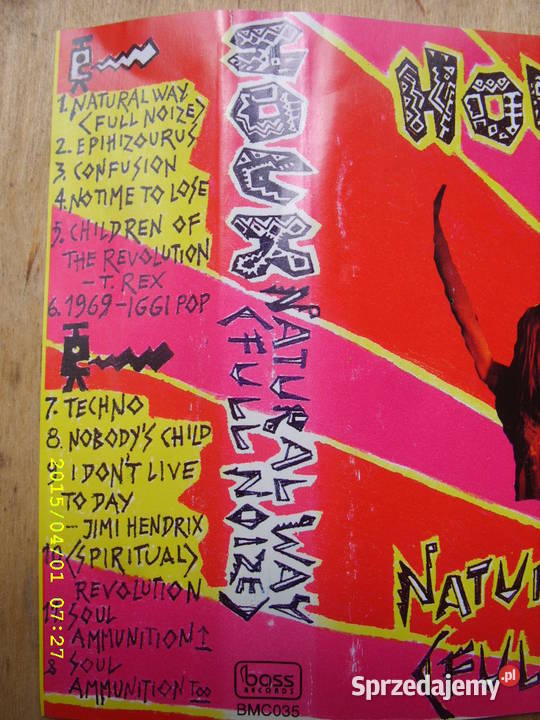 1. NATURAL WAY
(FULL NOIZE)
2. EPIHIZOURUS
3. CONFUSION
4. NO TIME TO LOSE
5. CHILDREN OF
THE REVOLUTION
- T. REX
6. 1969 - IGGI POP
7. TECHNO
8. NOBODY'S CHILD
I DON'T LIVE
TO DAY
- JIMI HENDRIX
10. (SPIRITUAL)
REVOLUTION
SOUL
AMMUNITION 1
SOUL
AMMUNITION TOO
HOUK
NATURAL WAY
(FULL NOIZE)
boss
RECORDS
BMC035
HO
NATUR
(FUL
2015/04/01 07:27
Sprzedajemy.pl